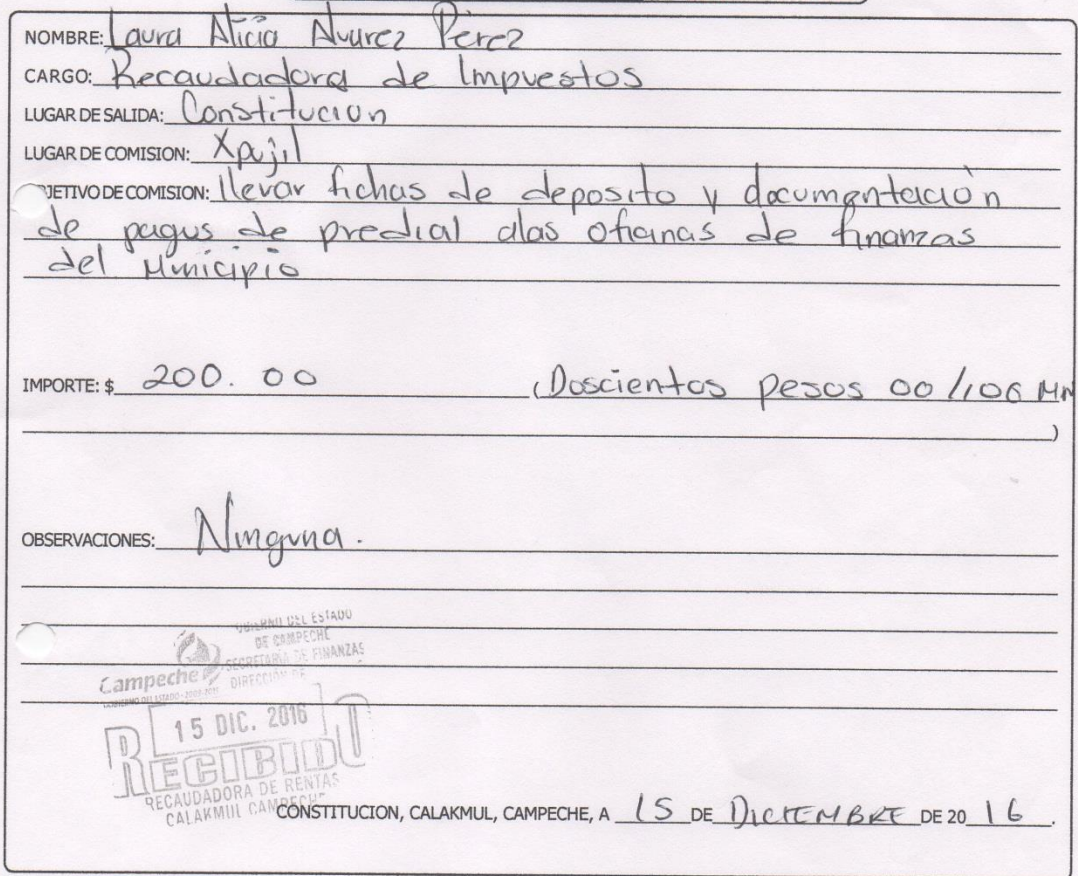 NOMBRE: Laura Alicia Alvarez Perez
CARGO: Recaudadora de Impuestos
LUGAR DE SALIDA: Constitucion
LUGAR DE COMISION: Xpujil
JETIVO DE COMISION: llevar fichas de deposito y documentación
de pagos de predial alas oficinas de finanzas
del Municipio
IMPORTE: $ 200.00 (Doscientos pesos 00/100 MN
)
OBSERVACIONES: Ninguna.
GOBIERNO DEL ESTADO
DE CAMPECHE
SECRETARIA DE FINANZAS
Campeche DIRECCIÓN DE
15 DIC. 2016
RECIBIDO
RECAUDADORA DE RENTAS
CALAKMUL CAMPECHE
CONSTITUCION, CALAKMUL, CAMPECHE, A 15 DE DICIEMBRE DE 20 16.